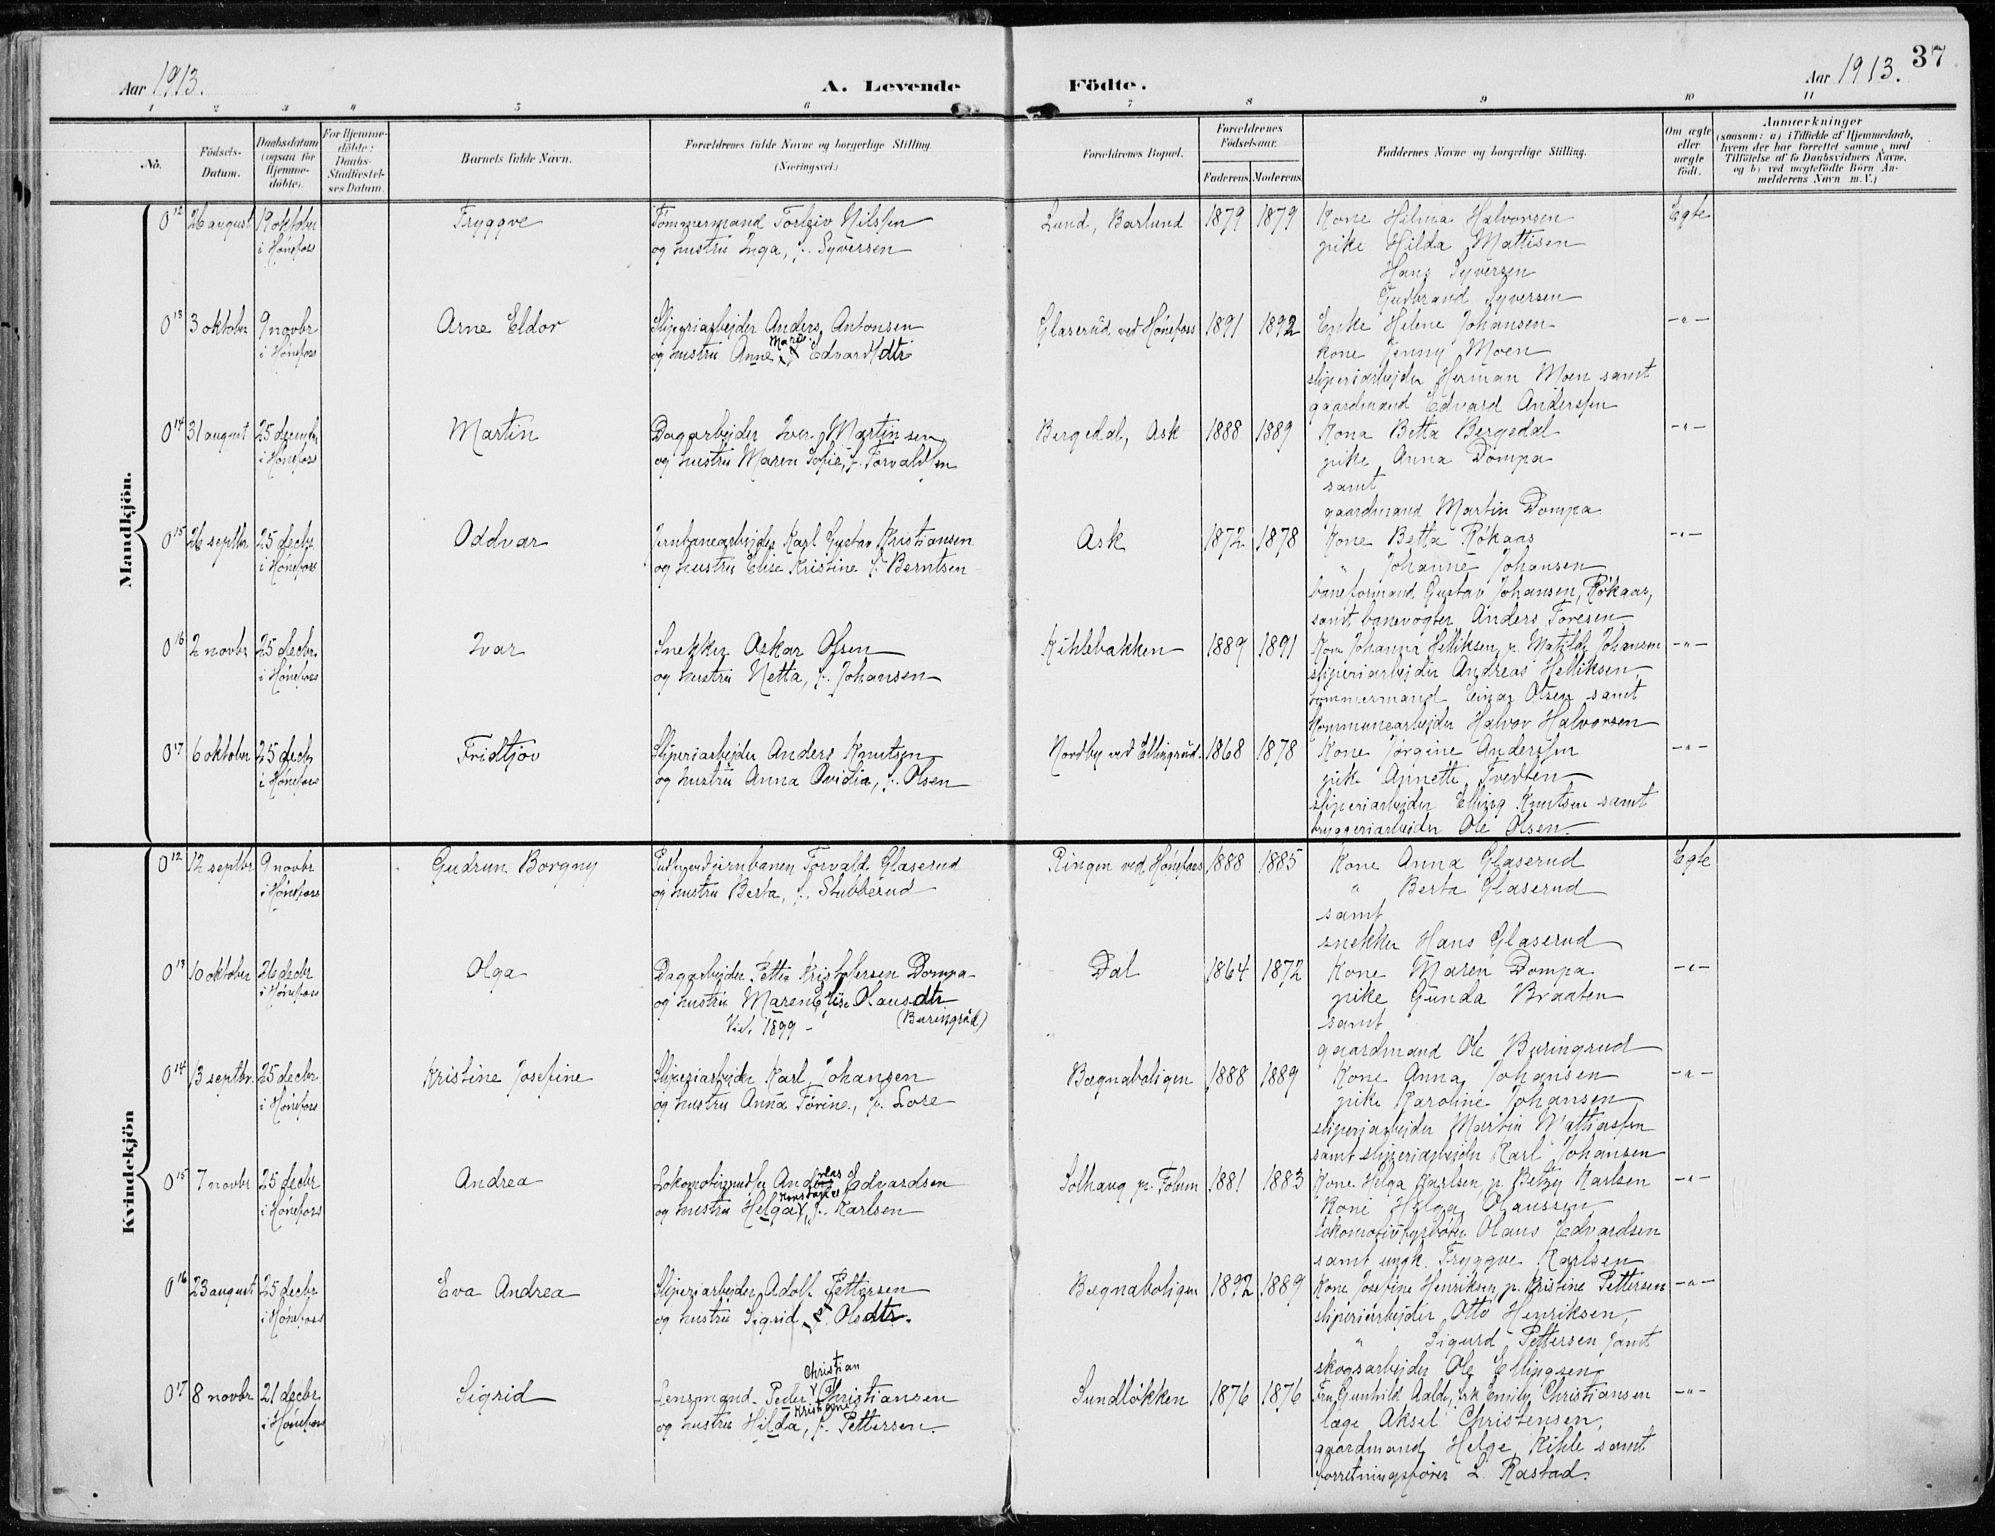 37
Aar 1913.
A. Levende Födte.
Aar 1913.
1 2 3 4 5 6 7 8 9 10 11
No.
Födsels-Datum.
Daabsdatum (ogsaa for Hjemmedöbte).
For Hjemmedöbte: Daabs-Stadfæstelses Datum.
Barnets fulde Navn.
Forældrenes fulde Navne og borgerlige Stilling.
(Næringsvei.)
Forældrenes Bopæl.
Forældrenes Födselsaar.
Faderens. Moderens.
Faddernes Navne og borgerlige Stilling.
Om ægte eller uægte födt.
Anmærkninger
(saasom: a) i Tilfælde af Hjemmedaab, hvem der har forrettet samme, med Tilföielse af to Daabsvidners Navne, og b) ved uægtefödte Börn Anmelderens Navn m. V.)
Mandkjön.
0 12 26 august 19 oktober Tryggve Tømmermand Torleiv Nilssen Lund, Barlund 1879 1879 Kone Hilma Halvorsen Egte
i Hønefoss og hustru Inga, f. Syversen pike Hilda Mattisen
Hans Syversen
Gudbrand Syversen
0 13 3 oktober 9 novbr Arne Eldor Sliperiarbejder Anders Antonsen Glaserud ved Hønefoss 1891 1892 Enke Helene Johansen -"-
Marie
i Hønefoss og hustru Anne Edvardsdtr kone Jenny Moen
sliperiarbejder Herman Moen samt
gaardmand Edvard Anderssen
0 14 31 august 25 decembr Martin Dagarbejder Iver Martinsen Bergedal, Ask 1888 1889 Kona Betta Bergedal -"-
i Hønefoss og hustru Maren Sofie, f. Torvaldsen pike Anna Dompa
samt
gaardmand Martin Dompa
0 15 26 septbr 25 decbr Oddvar Jernbanearbejder Karl Gustav Kristiansen Ask 1872 1878 Kone Betta Røkaas -"-
i Hønefoss og hustru Elise Kristine f. Berntsen " Johanne Johansen
baneformand Gustav Johansen, Røkaas,
samt banevogter Anders Toresen
0 16 2 novbr 25 decbr. Ivar Snekker Askar Olsen Kihlebakken 1889 1891 Kone Johanna Helliksen, p. Matilde Johansen -"-
i Hønefoss og hustru Netta, f. Johansen sliperiarbejder Andreas Helliksen,
tømmermand Einar Olsen samt
kommunearbejder Halvor Halvorsen
0 17 6 oktober 25 decbr Fridtjov Sliperiarbejder Anders Knutsen Nordby ved Ellingrud 1868 1878 Kone Jørgine Anderssen -"-
i Hønefoss og hustru Anna Ovidia, f. Olsen pike Annette Tvedten
sliperiarbejder Elling Knutsen samt
bryggeriarbeider Ole Olsen.
Kvindekjön
0 12 12 septbr 9 novbr Gudrun Borgny jernbanen Torvald Glaserud Ringen ved Hønefoss 1888 1885 Kone Anna Glaserud Egte
i Hønefoss og hustru Berta, f. Stubberud " Berta Glaserud
samt
snekker Hans Glaserud
0 13 10 oktober 26 decbr Olga Dagarbejder Petter Kristofersen Dompa Dal 1864 1872 Kone Maren Dompa -"-
i Hønefoss og hustru Maren Elise Olausdtr pike Gunda Braaten
Viet 1899 - (Buringrud) samt
gaardmand Ole Buringrud
0 14 13 septbr. 25 decbr Kristine Josefine Sliperiarbejder Karl Johansen Bægnaboligen 1888 1889 Kone Anna Johansen -"-
i Hønefoss og hustru Anna Torine, f. Lore pike Karoline Johansen
sliperiarbejder Martin Mathiassen
samt sliperiarbejder Karl Johansen
0 15 7 novbr 25 decbr Andrea Lokomotivpudser Andreas Edvardsen Solhaug pr. Follum 1881 1883 Kone Helga Karlsen, p. Betzy Karlsen -"-
Konstance
i Hønefoss og hustru Helga, f. Karlsen Kone Helga Olaussen
lokomotivfyrbøter Olaus Edvardsen
samt ungk. Tryggve Karlsen
0 16 23 august 25 decbr Eva Andrea Sliperiarbejder Adolf Pettersen Bægnaboligen 1892 1889 Kone Josefine Henriksen, p. Kristine Pettersen -"-
i Hønefoss og hustru Sigrid Olsdtr. sliperiarbejder Otto Henriksen,
" Sigurd Pettersen samt
skogsarbejder Ole Ellingsen
Christian
0 17 8 novbr 21 decbr Sigrid Lensmand Peder Christiansen Sundløkken 1876 1876 Fru Gunhild Aalde, frk Emily Christiansen -"-
Kristiane
i Hønefoss og hustru Hilda, f. Pettersen. læge Aksel Christensen,
gaardmand Helge Kihle samt
forretningsfører L. Rastad.